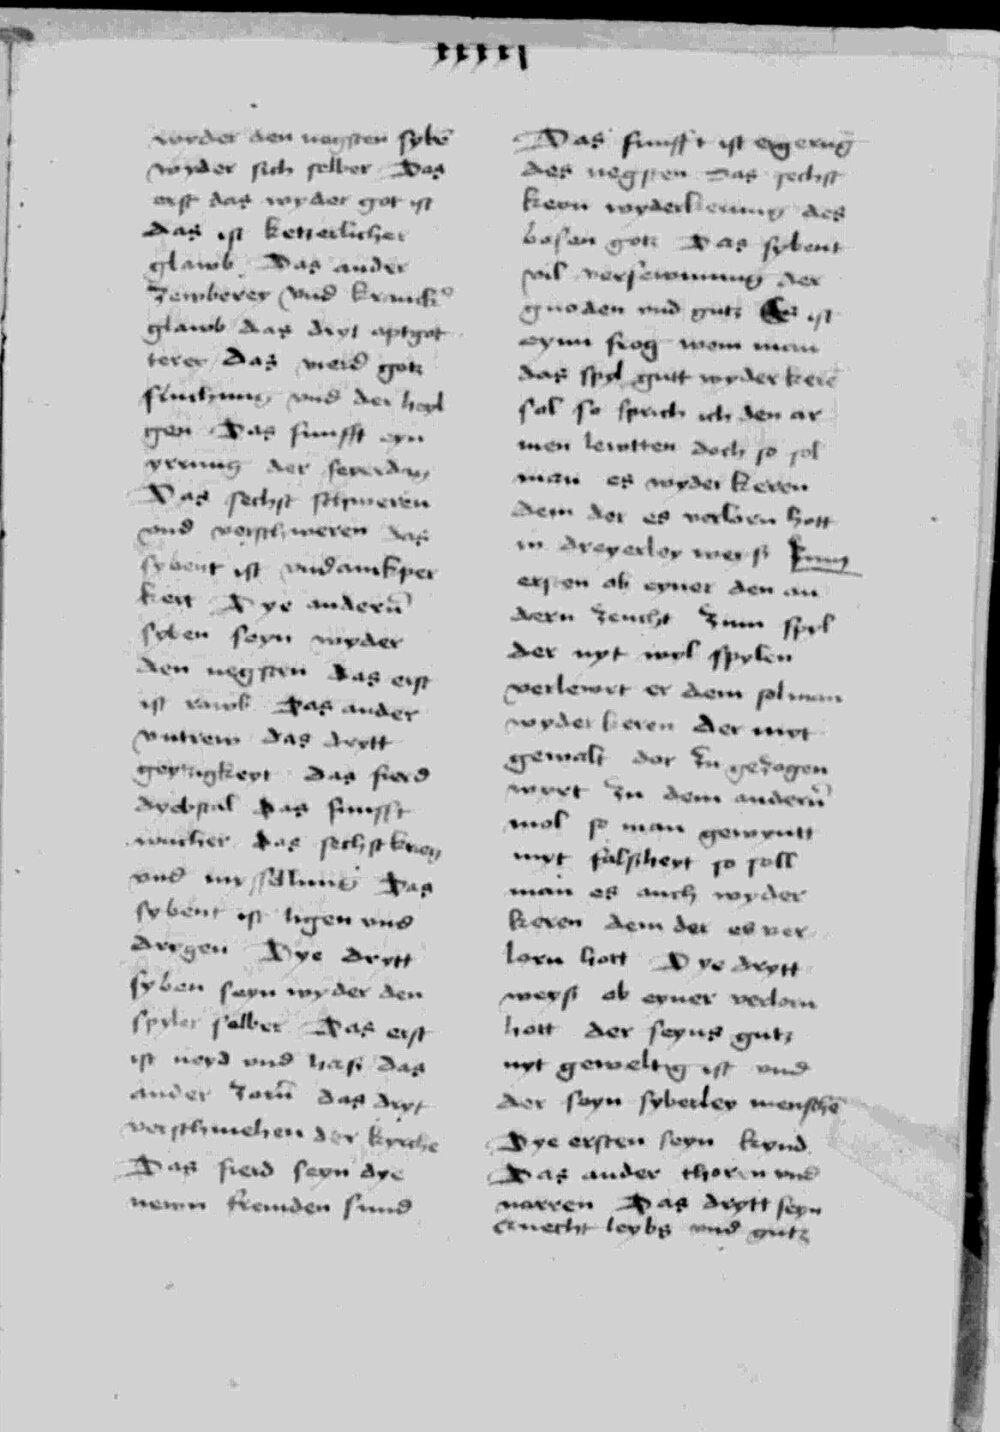 xxxxj
wyder den negsten sybē
wyder sich selber Das
erst das wyder got ist
das ist ketzerlicher
glawb Das ander
Zewberey vnd kranck
glawb das dryt aptgot
terer das vierd gotz
fluchung vnd der heyl
gen Das funfft eyn
yrrung der feyerdag
Das sechst schweren
vnd verschweren das
sybent ist vndanckper
keit Dye andern̄
syben seyn wyder
den negsten das erst
ist rawb Das ander
vntrew das drytt
geytzigkeyt das fierd
dyebstal das funfft
wucher das sechst krieg
vnd Das
sybent ist ligen vnd
drygen Dye drytt
syben seyn wyder den
spyler selber Das erst
ist neyd vnd hasß das
ander zorn̄ das dryt
verschmehen der kyrche
Das fierd seyn dye
newn fremden sund
Das funfft ist ergeruḡ
des negsten Das sechst
keyn wyderkerung des
bosen gotz Das sybent
vil versewmung der
gnoden vnd gutz Es ist
eynn frog wem man
das spyl gutt wyder kerē
sol so sprich ich den ar
men lewtten doch so sol
man es wyder keren
dem der es verlorn hott
in dreyerley weysß Zum
ersten ob eyner den an
dern zeucht zum spyl
der nyt wyl spylen
verlewrt er dem sol man
wyder keren der myt
gewalt dor zu gezogen
wyrt zu dem andern̄
mol so man gewynt
myt falscheyt so soll
man es auch wyder
keren dem der es ver
lorn hott Dye drytt
weysß ob eyner verlorn
hott der seyns gutz
nyt geweltig ist vnd
der seyn syberley menschē
Dye ersten seyn kynd
Das ander thoren vnd
narren Das drytt seyn
knecht leybs vnd gutz